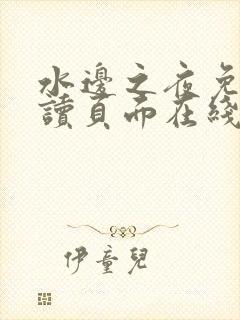 水邊之夜免
讀頁面在綫
伊童兒